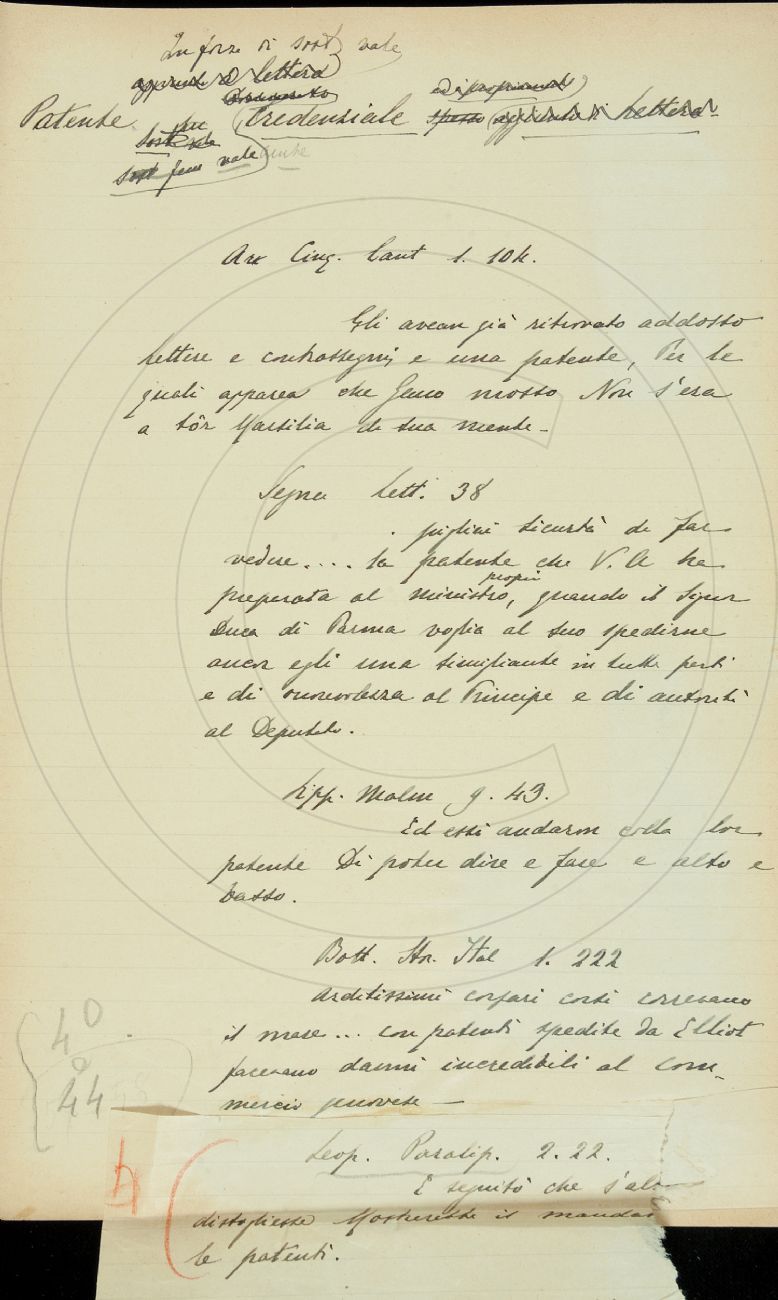 In forza di sost vale
apponendo a lettera
Documento
Patente Credenziale
sost fem vale
Ar Cinq. Cant 1. 104.
Gli avean già ritrovato addosso
lettere e contrassegni, e una patente, Per le
quali apparea che Geno mosso Non s'era
a tôr Marsilia di sua mente -
Segner Lett. 38
pigliai sicurtà di far
vedere.... la patente che V. A ha
preparata al ministro, quando il Signor
propri
Duca di Parma voglia al suo spedirne
ancor egli una simigliante in tutte parti
e di onorevolezza al Principe e di autorità
al Deputato.
Lipp. Malm 9. 43.
Ed essi andaron colla lor
patente Di poter dire e fare e alto e
basso.
Bott. Stor. Ital 1. 222
Arditissimi corsari corsi correvano
il mare... con patenti spedite da Elliot
facevano danni incredibili al com-
mercio genovese -
40
44
4
Leop. Paralip. 2. 22.
E seguitò che s'al
distogliesse il mandar
le patenti.